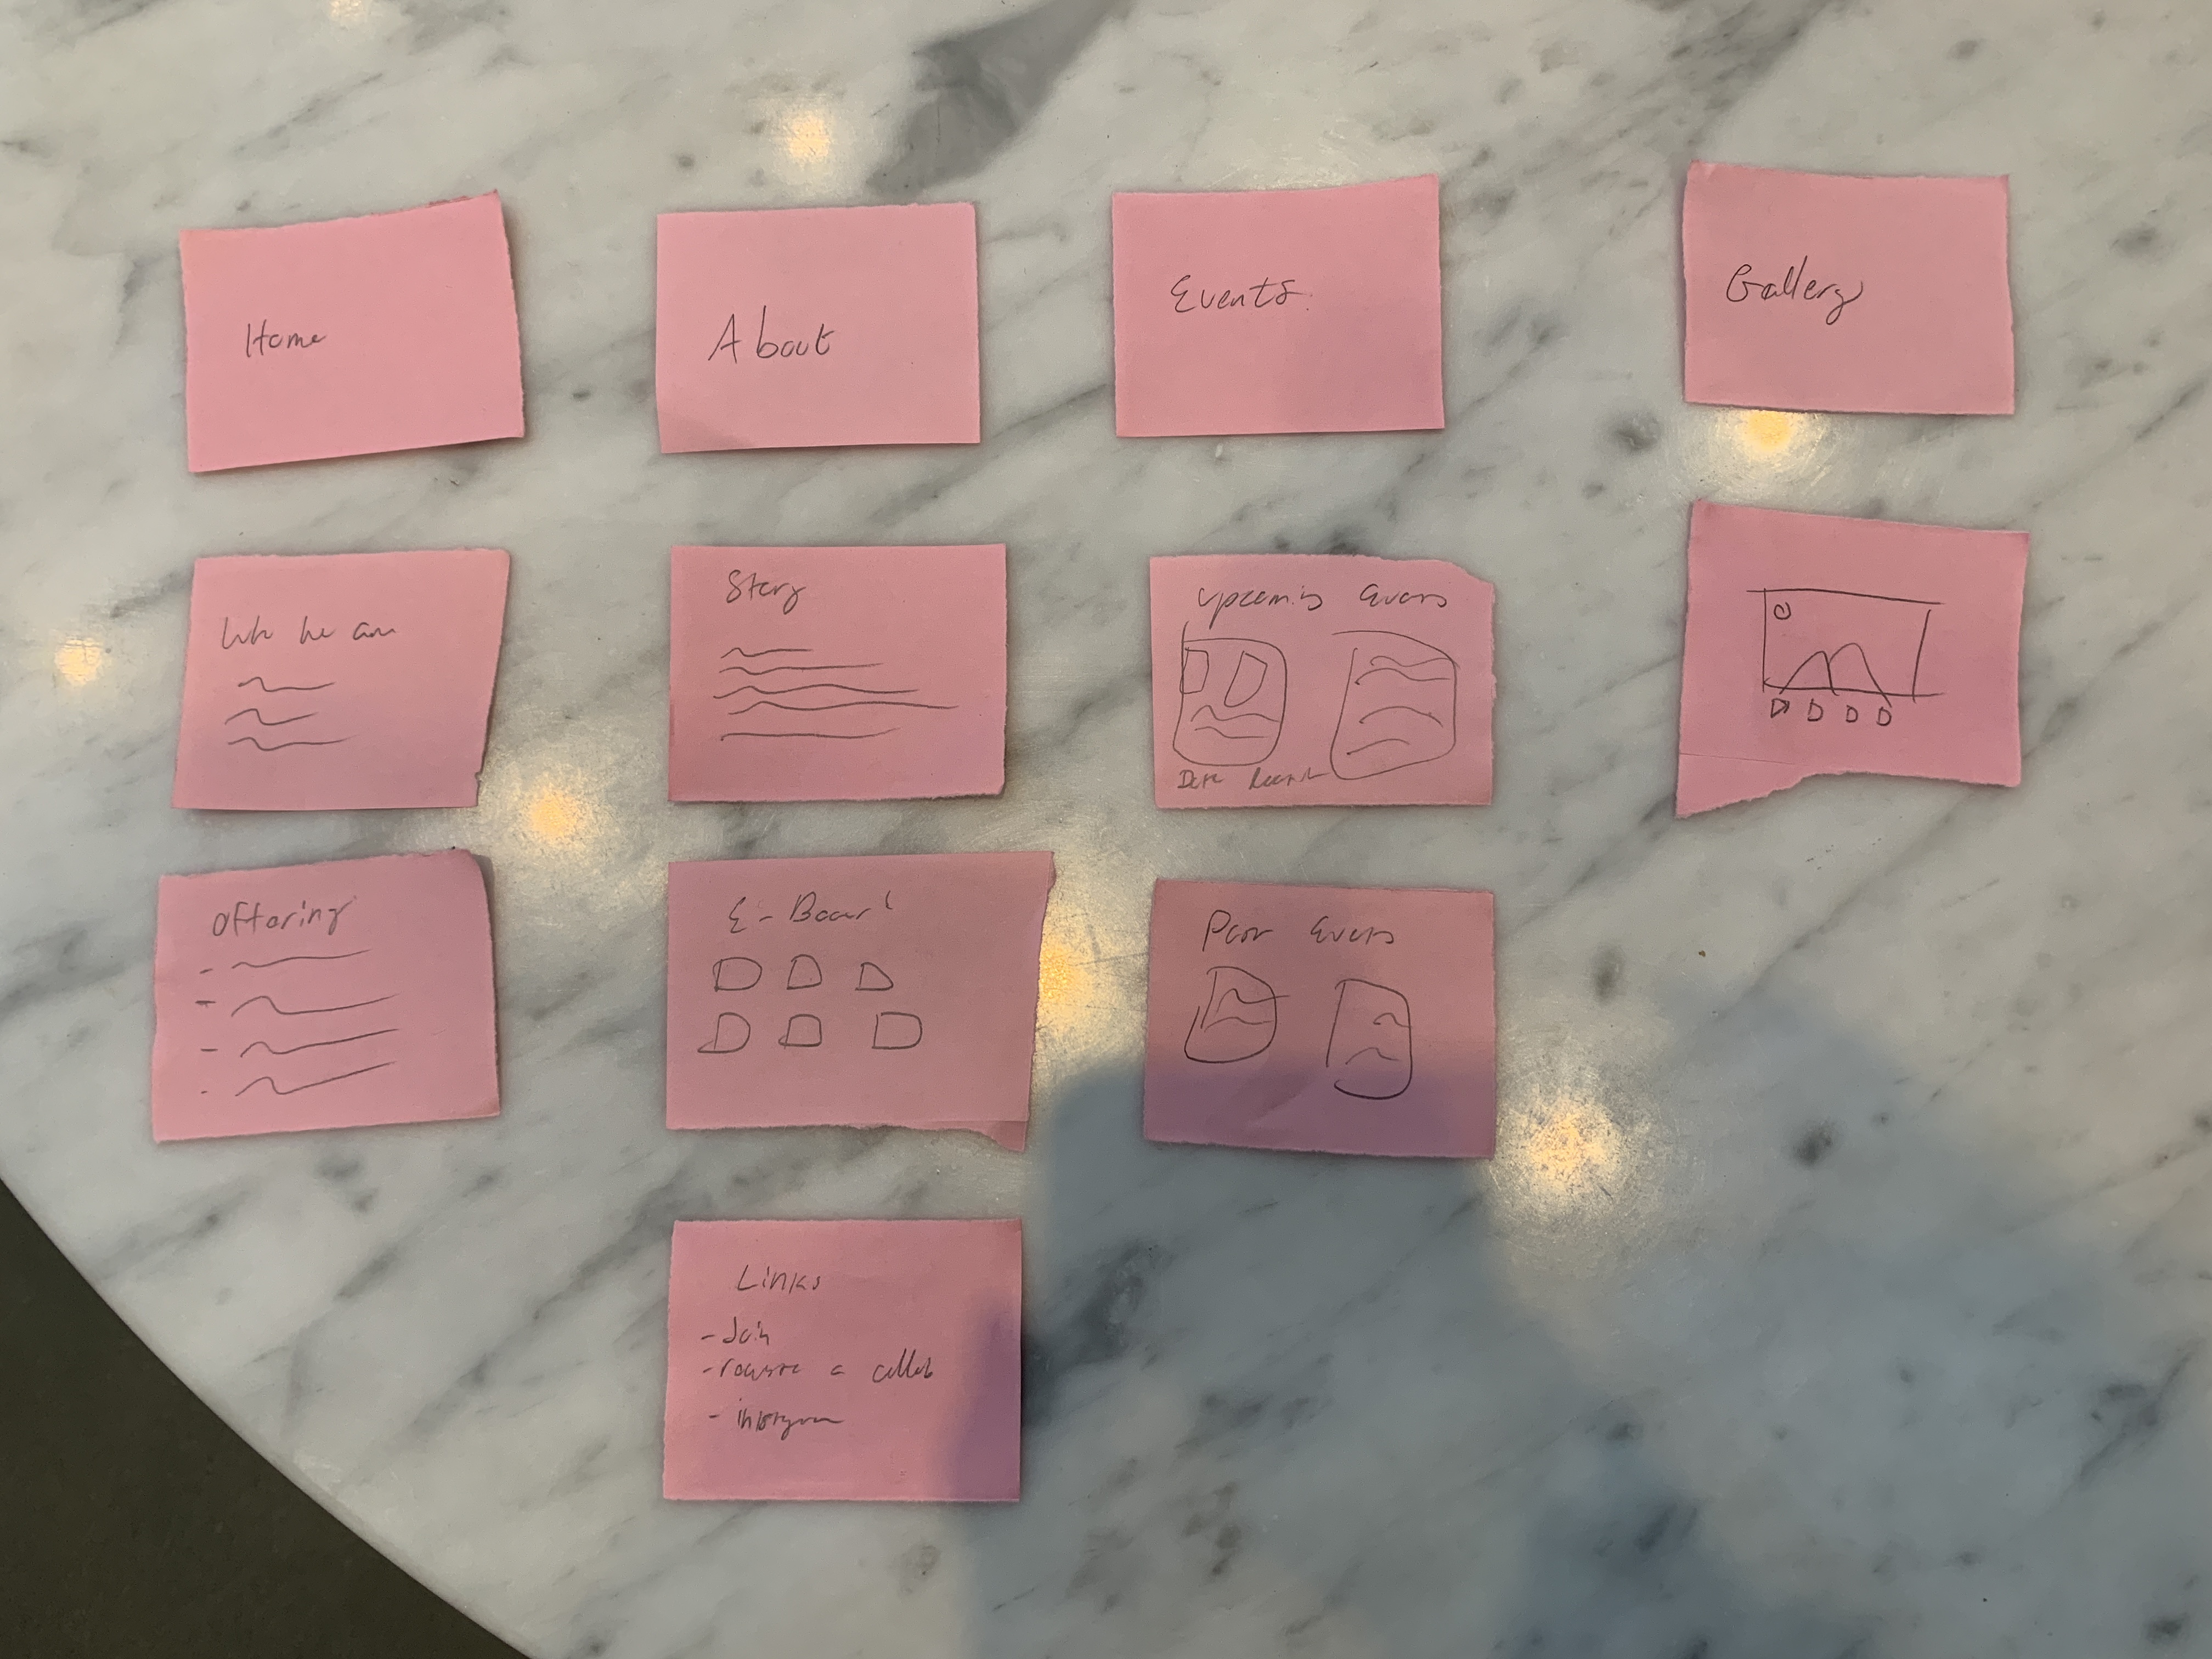 Home
Who we are
Offering
About
Story
E-Board
Links
- Join
- a collab
- instagram
Events.
Upcoming Events
Past Events
Gallery